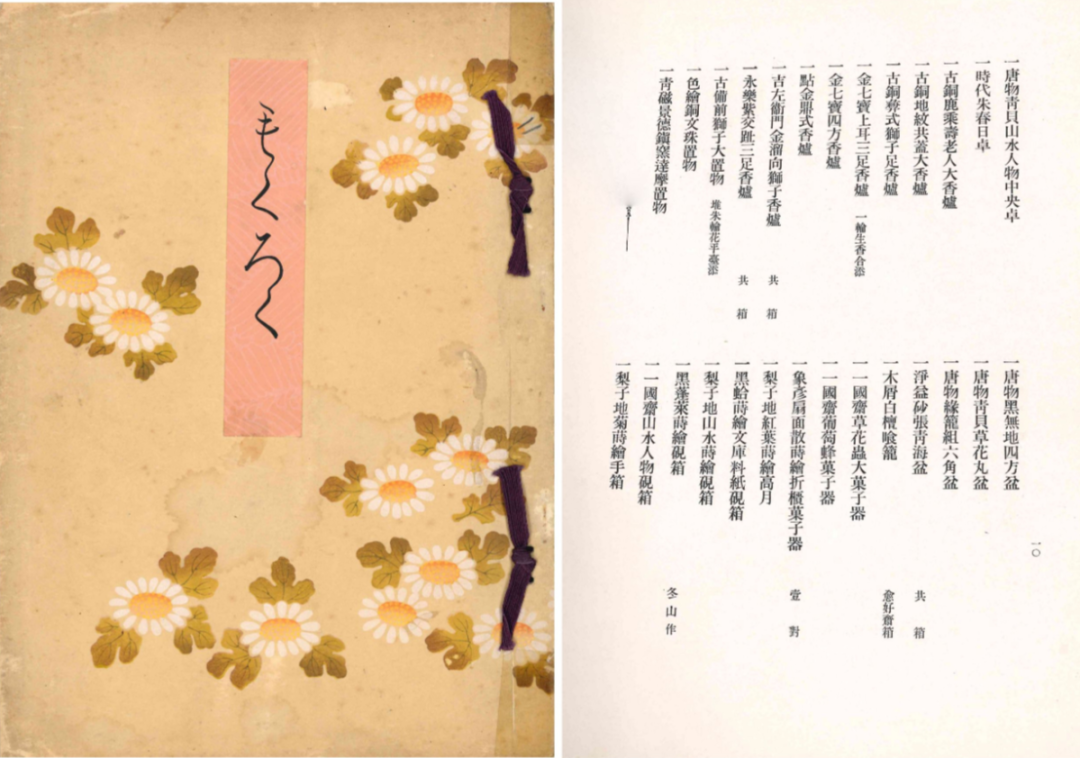 もくろく
一唐物靑貝山水人物中央卓
一時代朱春日卓
一古銅鹿乘壽老人大香爐
一古銅地紋共蓋大香爐
一古銅彛式獅子足香爐
一金七寶上耳三足香爐 一輪生香合添
一金七寶四方香爐
一點金鼎式香爐
一吉左衞門金溜向獅子香爐 共箱
一永樂紫交趾三足香爐 共箱
一古備前獅子大置物 堆朱輪花平臺添
一色繪銅文珠置物
一靑磁景德鎭窯達摩置物
一唐物黑無地四方盆
一唐物靑貝草花丸盆
一唐物緣籠組六角盆
一淨益砂張靑海盆 共箱
一木屑白檀喰籠 愈好齋箱
一一國齋草花蟲大菓子器
一一國齋葡萄蜂菓子器
一象彥扇面散蒔繪折櫃菓子器 壹對
一梨子地紅葉蒔繪高月
一黑蛤蒔繪文庫料紙硯箱
一梨子地山水蒔繪硯箱
一黑蓬萊蒔繪硯箱 冬山作
一一國齋山水人物硯箱
一梨子地菊蒔繪手箱
一〇